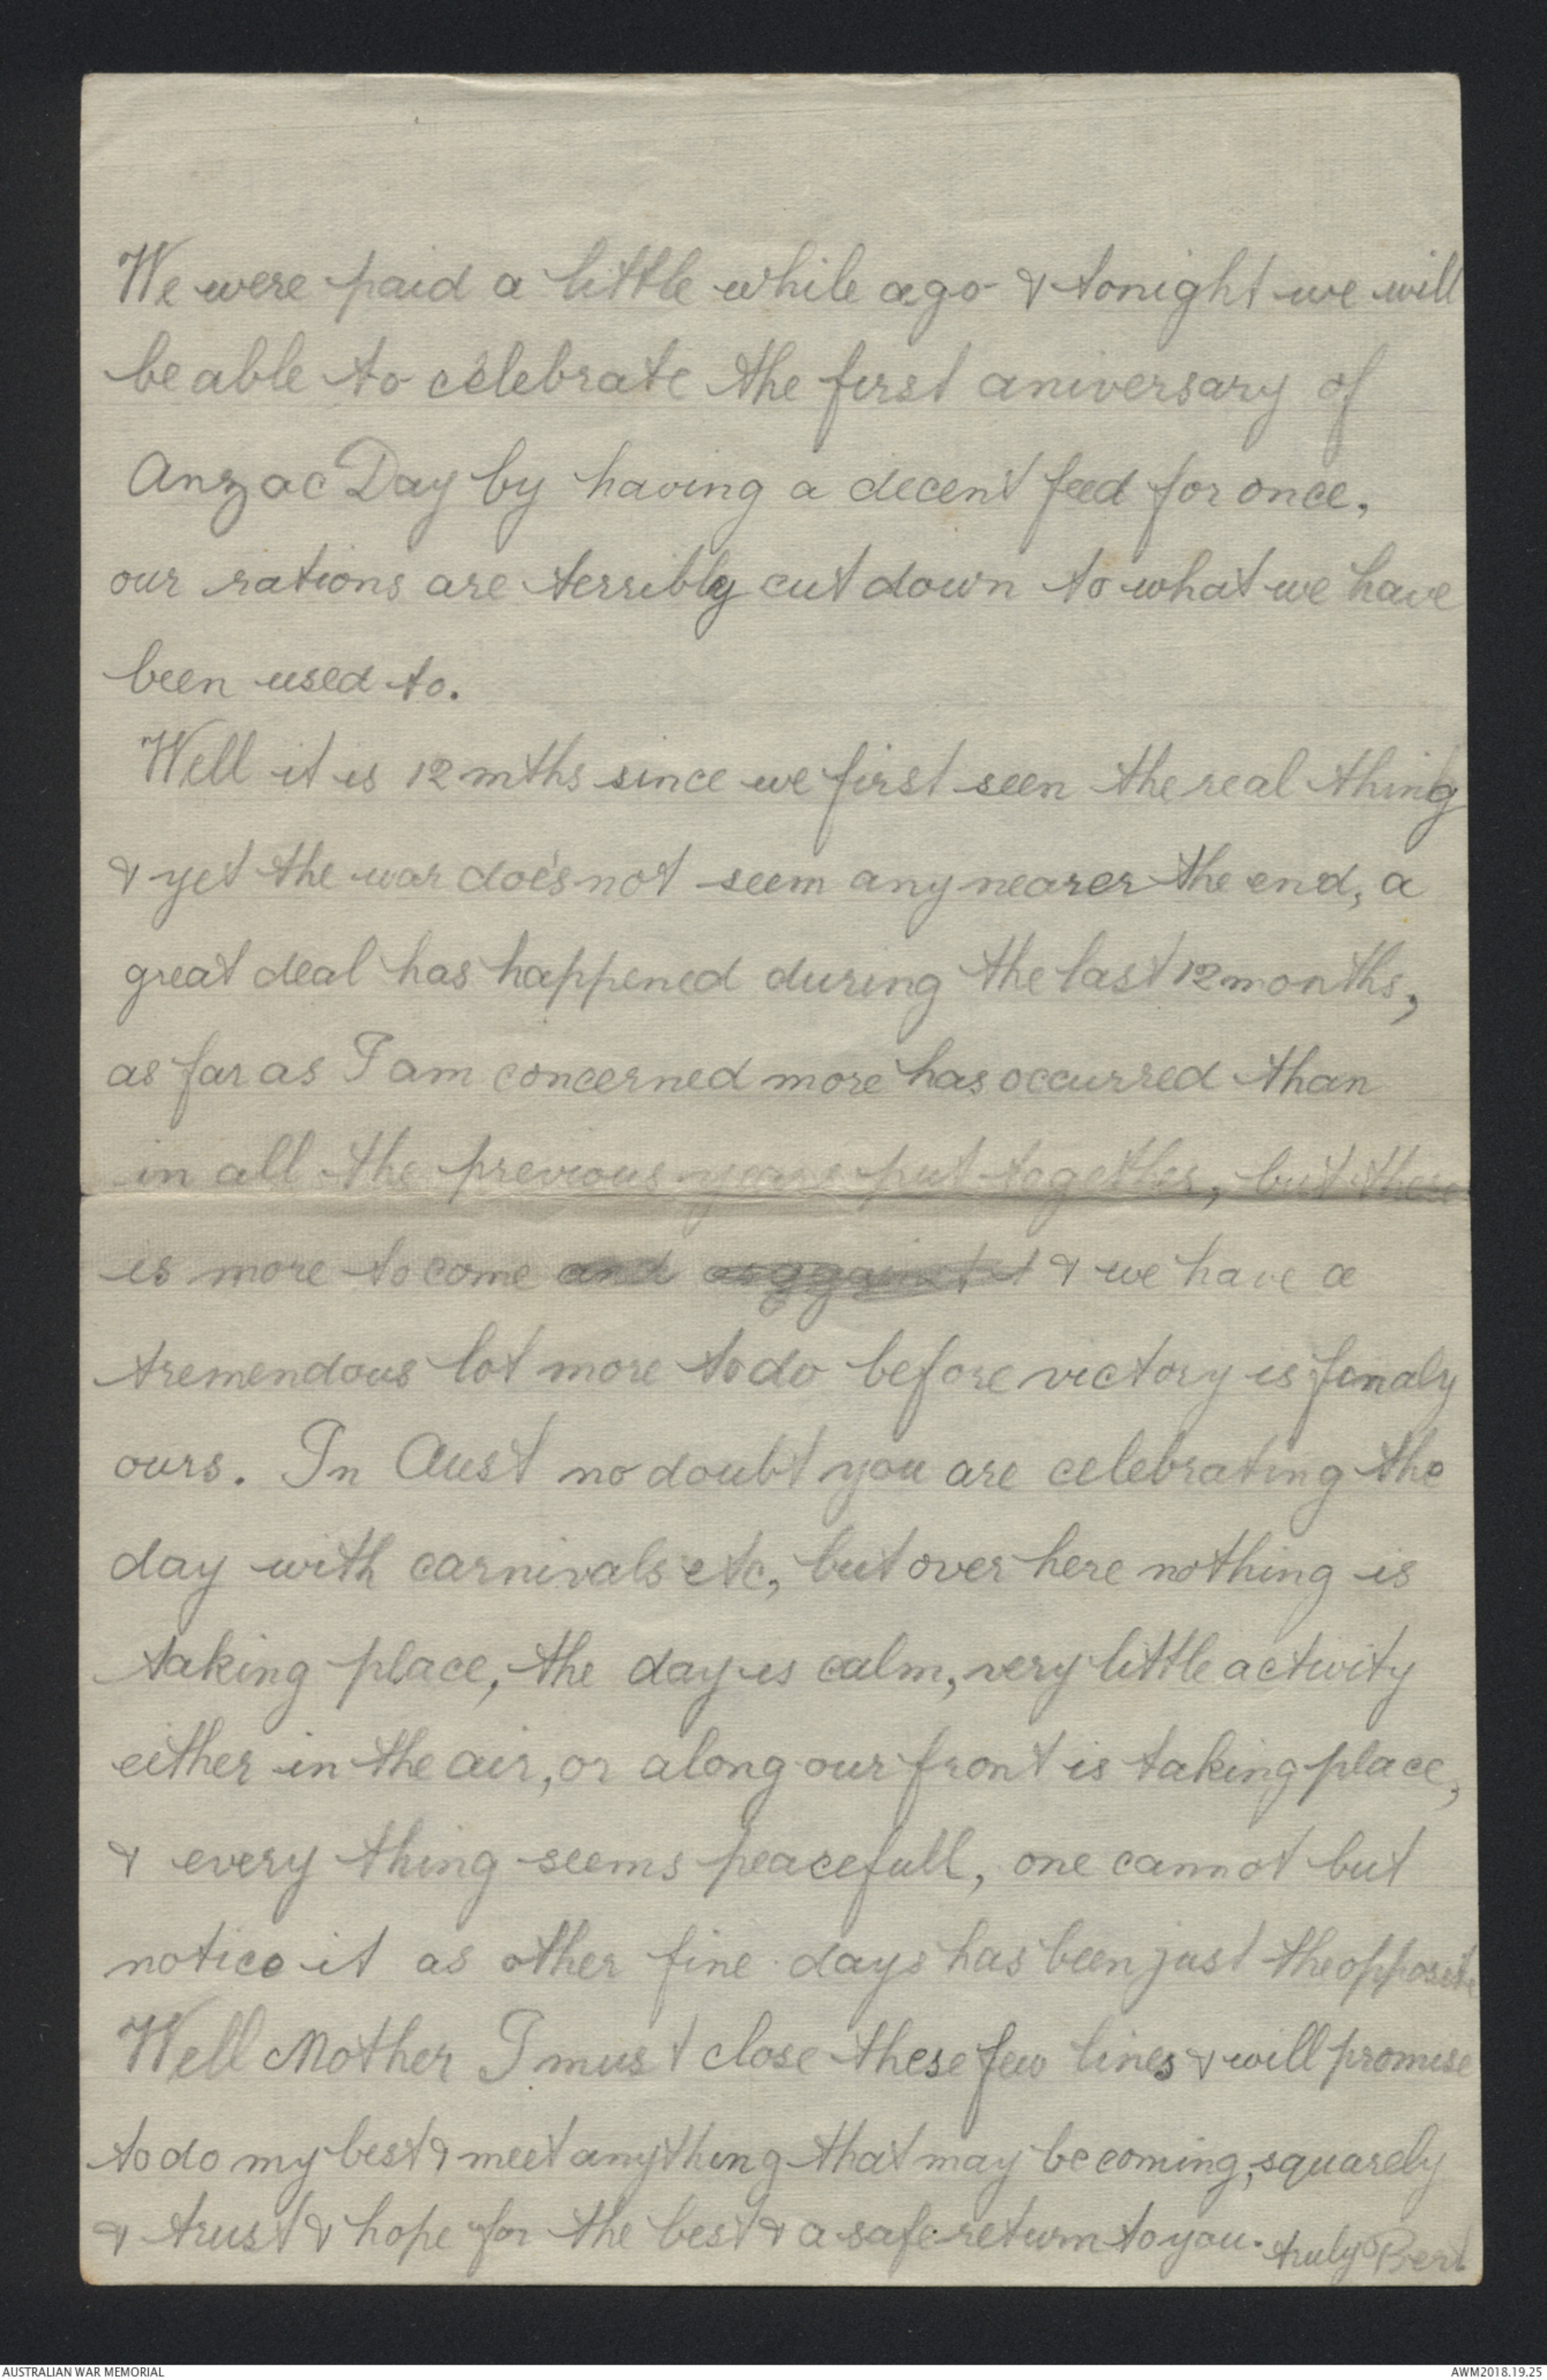 We were paid a little while ago & tonight we will
be able to celebrate the first aniversary of
Anzac Day by having a decent feed for once,
our rations are terribly cut down to what we have
been used to.
Well it is 12 mths since we first seen the real thing
& yet the war does not seem any nearer the end, a
great deal has happened during the last 12 months,
as far as I am concerned more has occurred than
in all the previous years put together, but there
is more to come and & we have a
tremendous lot more to do before victory is finaly
ours. In Aust no doubt you are celebrating the
day with carnivals etc, but over here nothing is
taking place, the day is calm, very little activity
either in the air, or along our front is taking place,
& every thing seems peacefull, one cannot but
notice it as other fine days has been just the opposite
Well Mother I must close these few lines & will promise
to do my best & meet anything that may be coming, squarely
& trust & hope for the best & a safe return to you. truly Bert
AUSTRALIAN WAR MEMORIAL
AWM2018.19.25